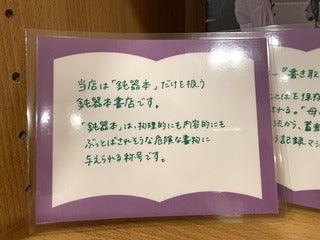 当店は「鈍器本」だけを扱う
鈍器本書店です。
「鈍器本」は、物理的にも内容的にも
ぶっとばされそうな危険な書物に
与えられる称号です。
書き取
ことばを保存
れる。「母
ろから、蓄
う記録マシ